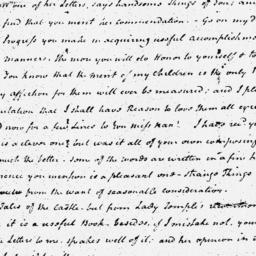 one of her Letters, says handsome things of you; an
find that you merit her commendation. - Go on my D
Progress you make in acquiring useful accomplishm
manners. The more you will do Honor to yourself & to
You know that the merit of my Children is the only
y affection for them will ever be measured; and I pl
ulation that I shall have Reason to love them all eq
d now for a few Lines to you miss Nan! I have rec.d yo
is a clever one; but was it all of your own composing
the Letter. some of the words are written in a fine h
rence you mention is a pleasant one - strange Things
from the want of seasonable consideration.
Tales of the Castle. but from Lady Temple's
it is a useful Book. besides, if I mistake not, your
Letter to me, speaks well of it; and her opinion is